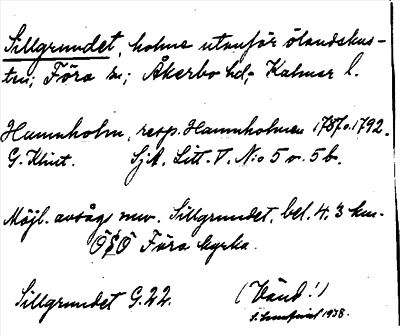 Sillgrundet, holme utanför ölandskus-
ten; Föra sn; Åkerbo hd; Kalmar l.
Hamnholm, resp. Hamnholmen 1787 o. 1792.
G. Klint. Sjk. Litt. V. N:o 5 o. 5 b.
Möjl. avsågs nuv. Sillgrundet, bel. 4.3 km.
ÖSÖ Föra kyrka.
Sillgrundet G.22. (Vänd!)
1938.